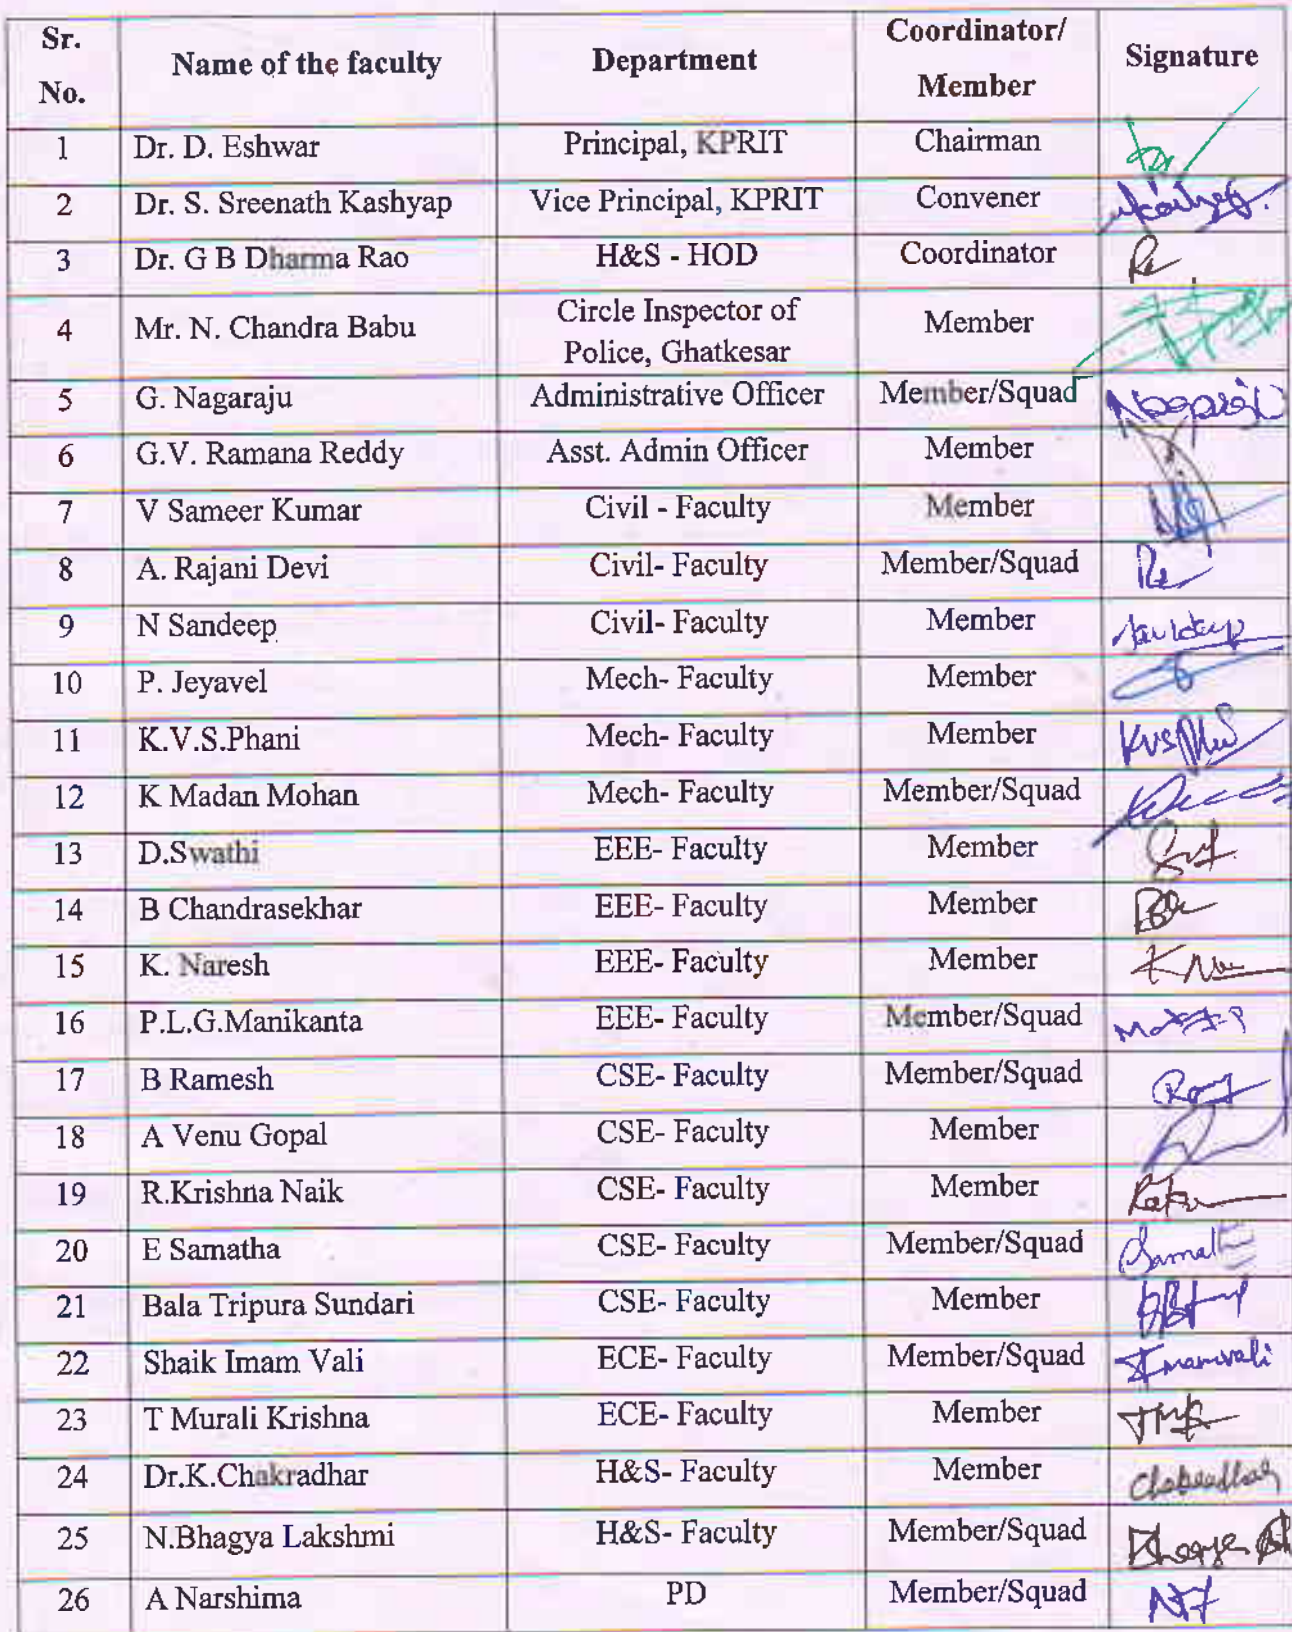 Sr. No. Name of the faculty Department Coordinator/ Member Signature
1 Dr. D. Eshwar Principal, KPRIT Chairman
2 Dr. S. Sreenath Kashyap Vice Principal, KPRIT Convener
3 Dr. G B Dharma Rao H&S - HOD Coordinator
4 Mr. N. Chandra Babu Circle Inspector of Police, Ghatkesar Member
5 G. Nagaraju Administrative Officer Member/Squad
6 G.V. Ramana Reddy Asst. Admin Officer Member
7 V Sameer Kumar Civil - Faculty Member
8 A. Rajani Devi Civil- Faculty Member/Squad
9 N Sandeep Civil- Faculty Member
10 P. Jeyavel Mech- Faculty Member
11 K.V.S.Phani Mech- Faculty Member
12 K Madan Mohan Mech- Faculty Member/Squad
13 D.Swathi EEE- Faculty Member
14 B Chandrasekhar EEE- Faculty Member
15 K. Naresh EEE- Faculty Member
16 P.L.G.Manikanta EEE- Faculty Member/Squad
17 B Ramesh CSE- Faculty Member/Squad
18 A Venu Gopal CSE- Faculty Member
19 R.Krishna Naik CSE- Faculty Member
20 E Samatha CSE- Faculty Member/Squad
21 Bala Tripura Sundari CSE- Faculty Member
22 Shaik Imam Vali ECE- Faculty Member/Squad
23 T Murali Krishna ECE- Faculty Member
24 Dr.K.Chakradhar H&S- Faculty Member
25 N.Bhagya Lakshmi H&S- Faculty Member/Squad
26 A Narshima PD Member/Squad